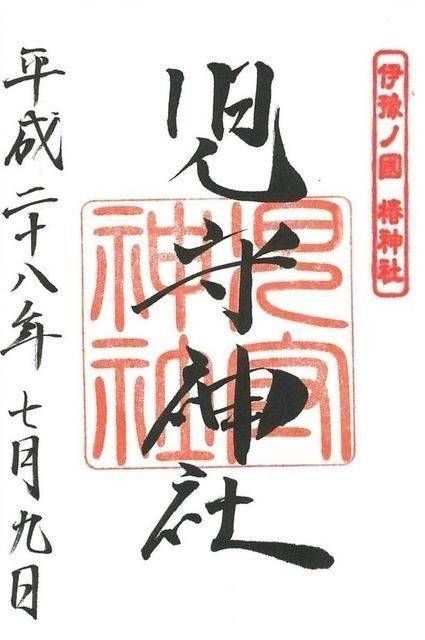 伊豫ノ國 椿神社
児守神社
児守神社
平成二十八年 七月九日